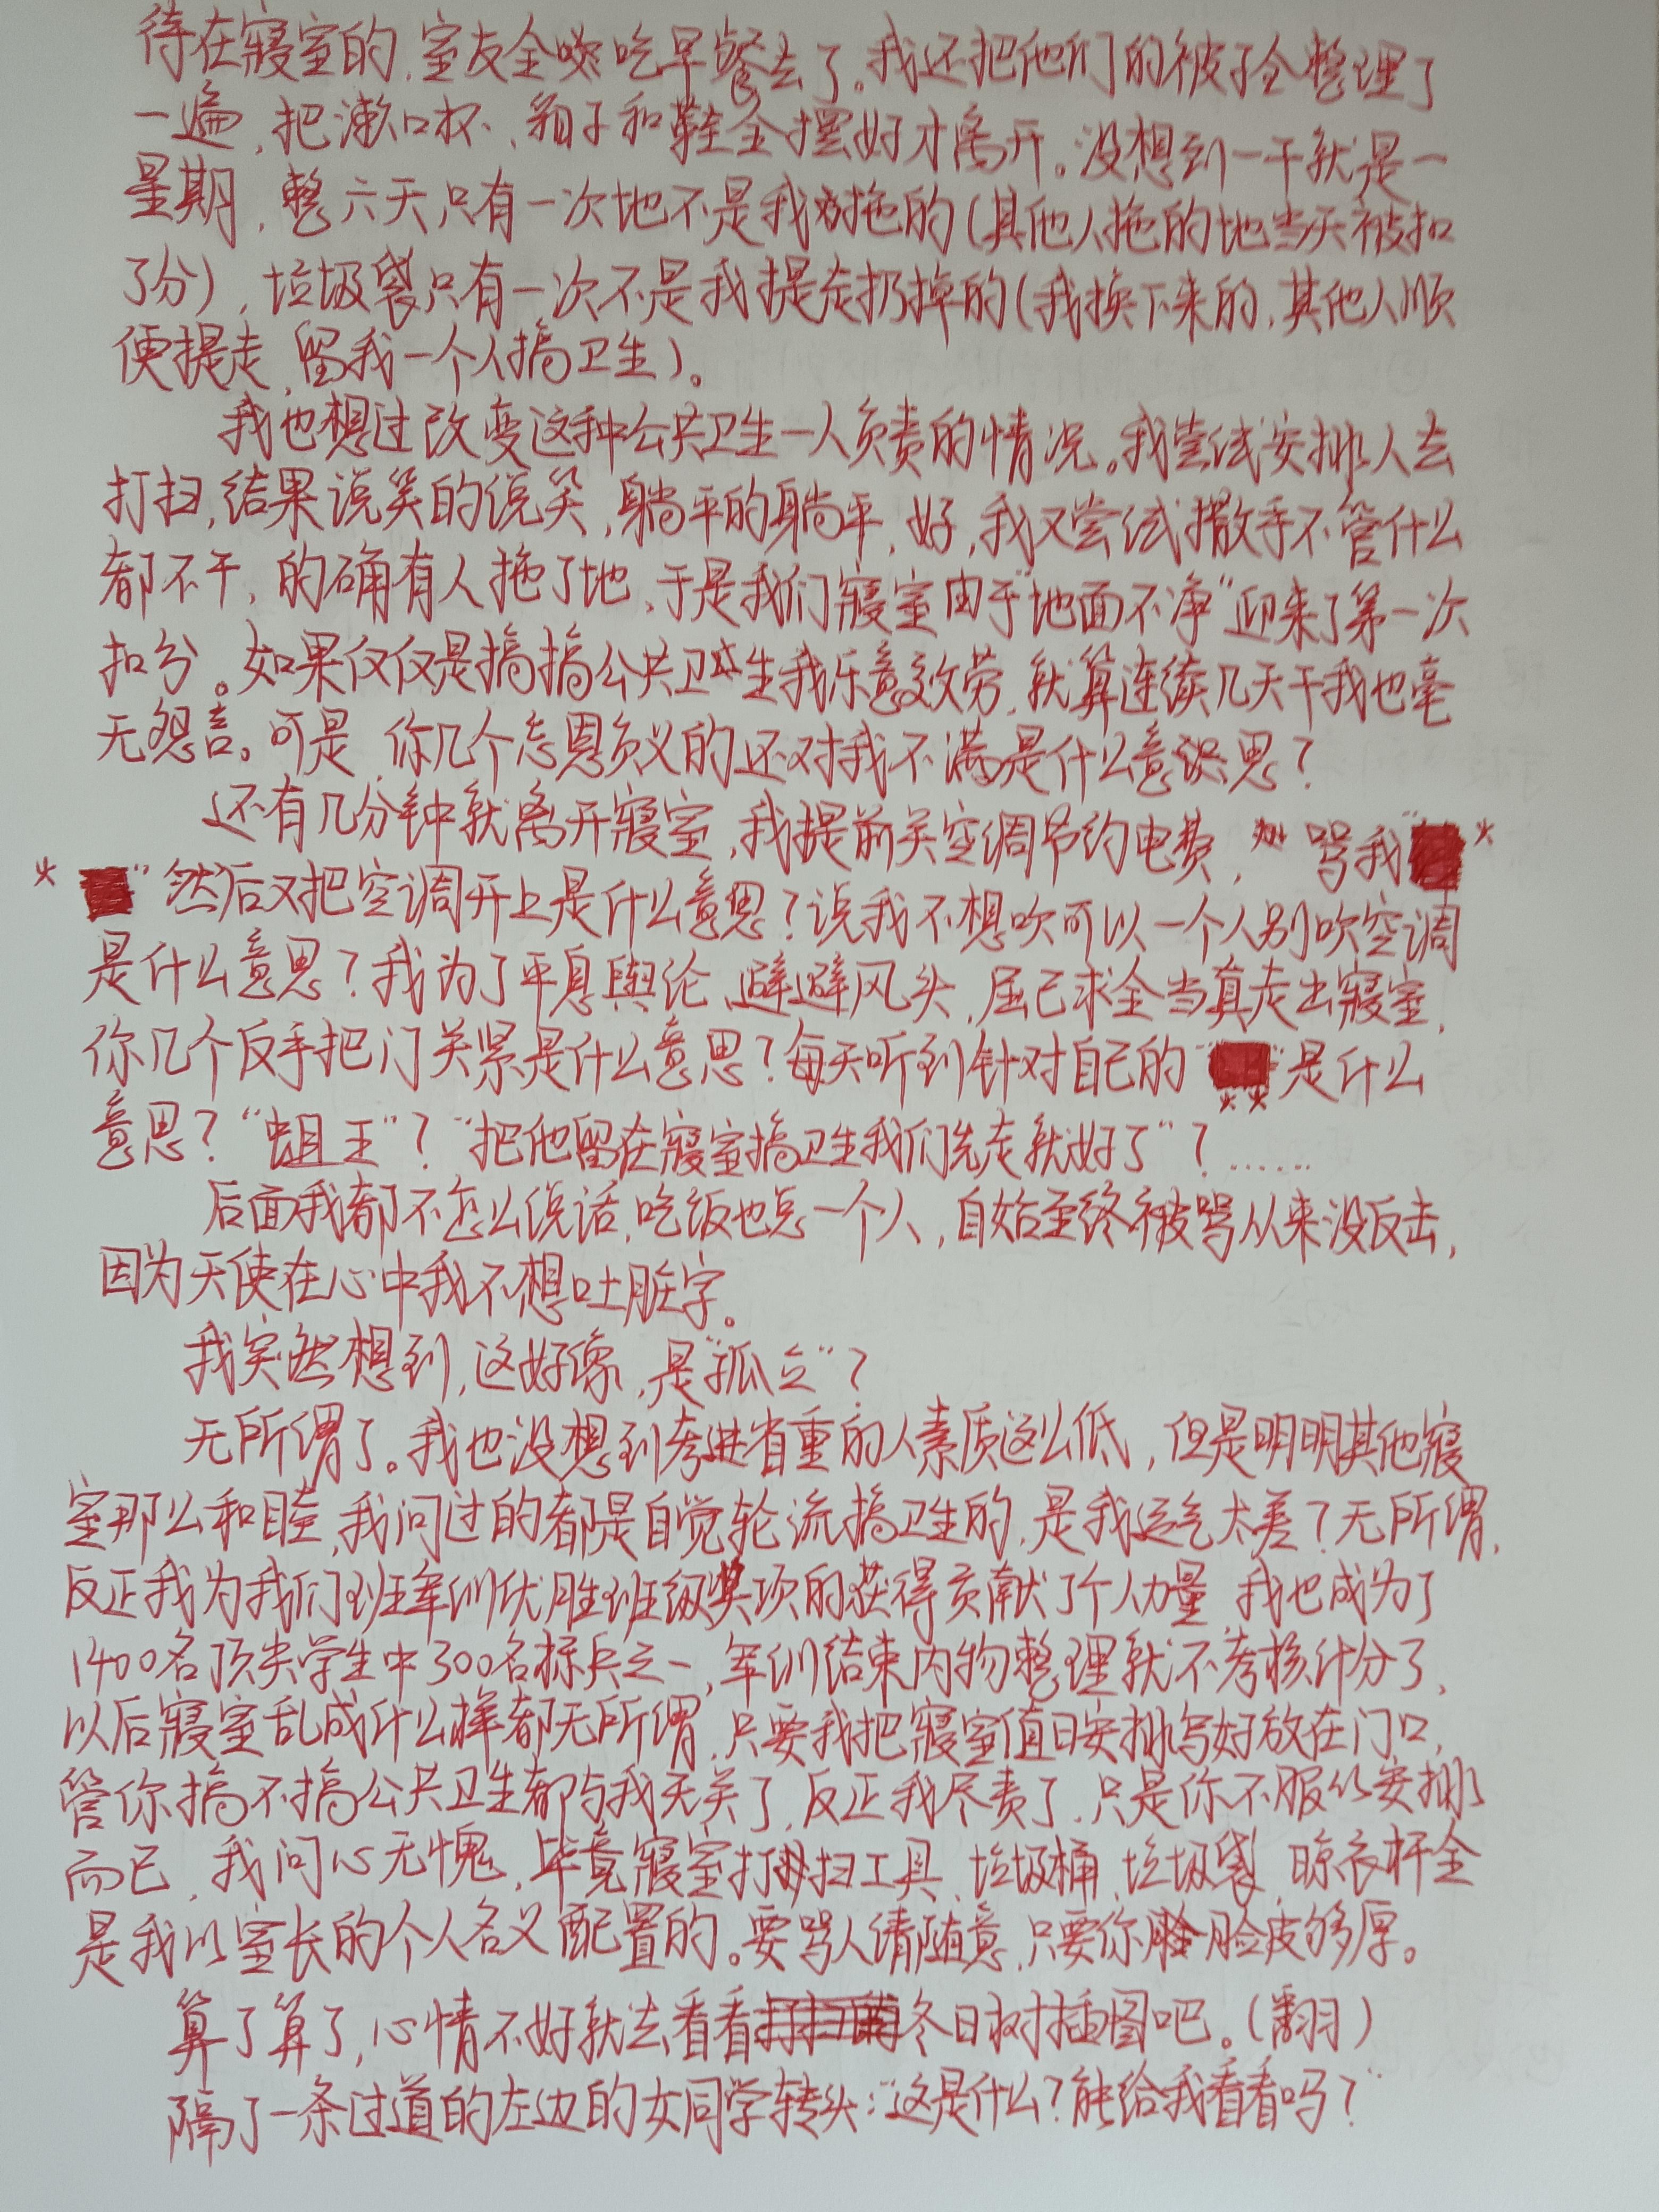 待在寝室的,室友全吃早餐去了。我还把他们的被子全整理了
一遍,把漱口杯、箱子和鞋全摆好才离开。没想到一干就是一
星期,整六天只有一次地不是我拖的(其他人拖的地当天被扣
了分),垃圾袋只有一次不是我提走扔掉的(我换下来的,其他人顺
便提走,留我一个人搞卫生)。
我也想过改变这种公共卫生一人负责的情况。我尝试安排人去
打扫,结果说笑的说笑,躺平的躺平,好,我又尝试撒手不管什么
都不干,的确有人拖了地,于是我们寝室由于"地面不净"迎来了第一次
扣分。如果仅仅是搞搞公共卫生我乐意效劳,就算连续几天干我也毫
无怨言。可是,你几个忘恩负义的还对我不满是什么意思?
还有几分钟就离开寝室,我提前关空调节约电费,骂我"
"然后又把空调开上是什么意思?说我不想吹可以一个人别吹空调
是什么意思?我为了平息舆论、避避风头,屈己求全当真走出寝室,
你几个反手把门关紧是什么意思?每天听到针对自己的""是什么
意思?"蛆王"?"把他留在寝室搞卫生我们先走就好了"?……
后面我都不怎么说话,吃饭也总一个人,自始至终被骂从来没反击,
因为天使在心中我不想吐脏字。
我突然想到,这好像,是"孤立"?
无所谓了。我也没想到考进省重的人素质这么低,但是明明其他寝
室那么和睦,我问过的都是自觉轮流搞卫生的,是我运气太差?无所谓,
反正我为我们班军训优胜班级奖项的获得贡献了个人力量,我也成为了
1400名顶尖学生中300名标兵之一,军训结束内物整理就不考核计分了,
以后寝室乱成什么样都无所谓,只要我把寝室值日安排写好放在门口,
管你搞不搞公共卫生都与我无关了,反正我尽责了,只是你不服从安排
而已,我问心无愧,毕竟寝室打扫工具、垃圾桶、垃圾袋、晾衣杆全
是我以室长的个人名义配置的。要骂人请随意,只要你脸皮够厚。
算了算了,心情不好就去看看冬日树插图吧。(翻)
隔了一条过道的左边的女同学转头:"这是什么?能给我看看吗?"